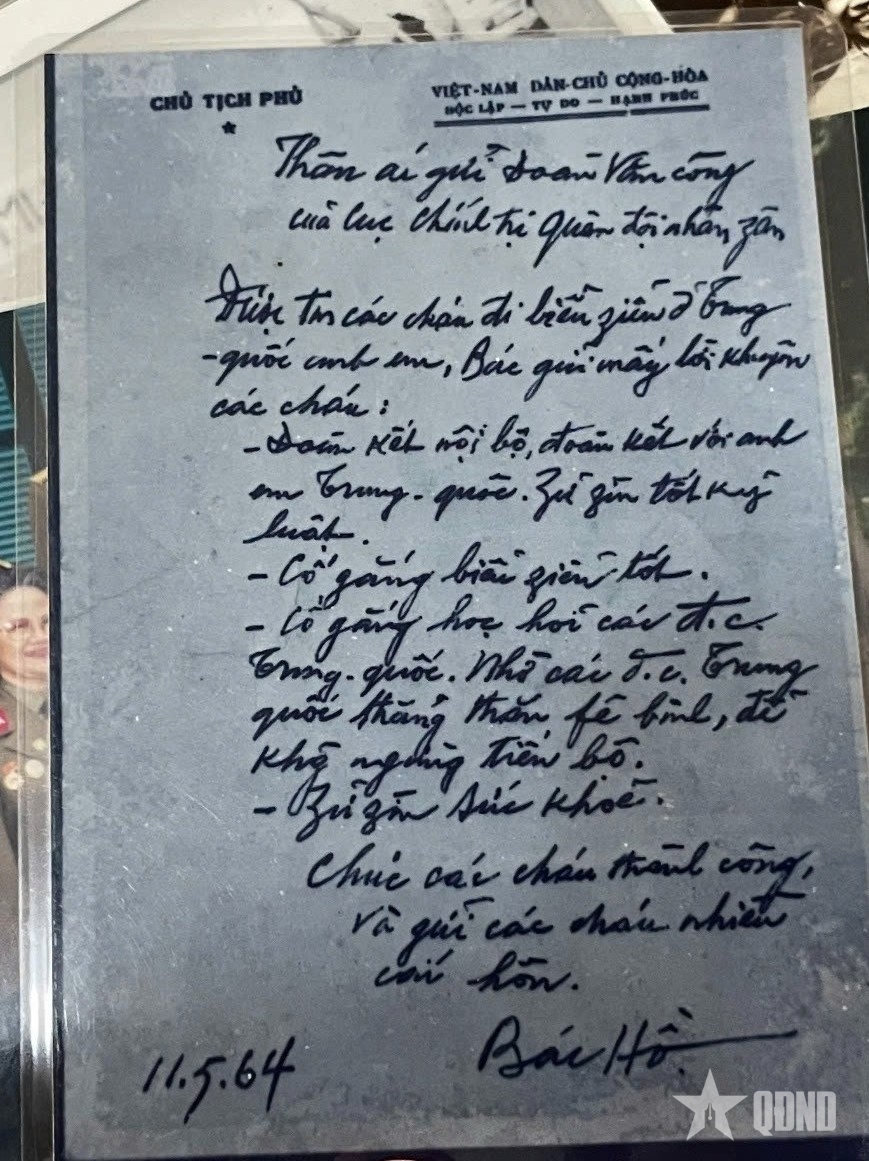 CHỦ TỊCH PHỦ
VIỆT-NAM DÂN-CHỦ CỘNG-HÒA
ĐỘC LẬP — TỰ DO — HẠNH PHÚC
Thân ái gửi Đoàn Văn công
của Cục Chính trị Quân đội nhân zân
Được tin các cháu đi biểu ziễn ở Trung
-quốc anh em, Bác gửi mấy lời khuyên
các cháu:
- Đoàn kết nội bộ, đoàn kết với anh
em Trung-quốc. Zữ zìn tốt kỷ
luật.
- Cố gắng biểu ziễn tốt.
- Cố gắng học hỏi các đ.c.
Trung-quốc. Nhờ các đ.c. Trung
quốc thẳng thắn fê bình, để
khg ngừng tiến bộ.
- Zữ zìn sức khỏe.
Chúc các cháu thành công,
và gửi các cháu nhiều
cái hôn.
Bác Hồ.
11.5.64
QĐND